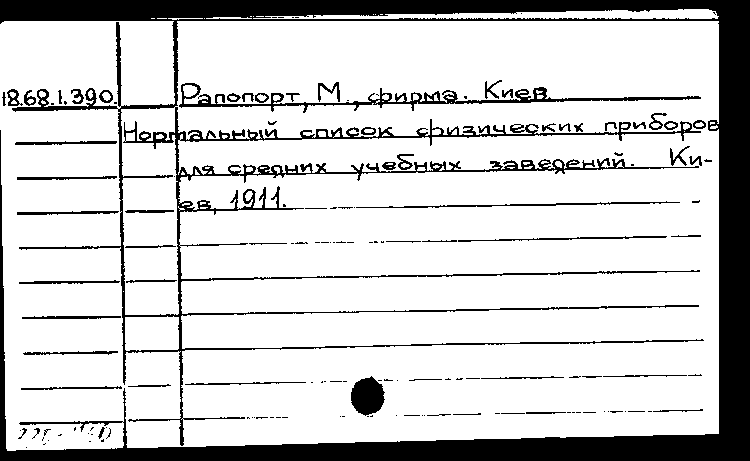 18.68.1.390. Рапопорт, М., фирма. Киев
Нормальный список физических приборов
для средних учебных заведений. Ки-
ев, 1911.